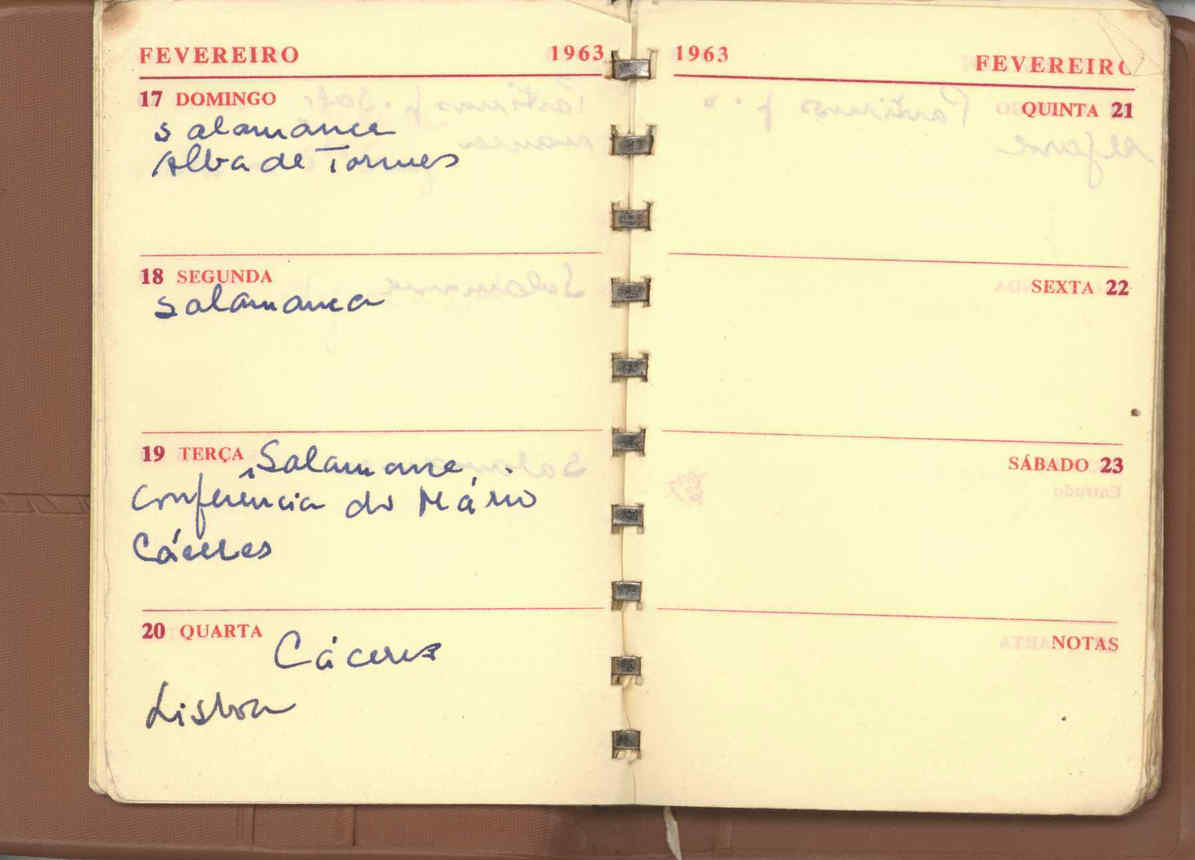 FEVEREIRO 1963
17 DOMINGO
Salamanca
Alba de Tormes
18 SEGUNDA
Salamanca
19 TERÇA Salamanca
Conferência do Mário
Cáceres
20 QUARTA
Cáceres
Lisboa
1963 FEVEREIRO
QUINTA 21
SEXTA 22
SÁBADO 23
NOTAS